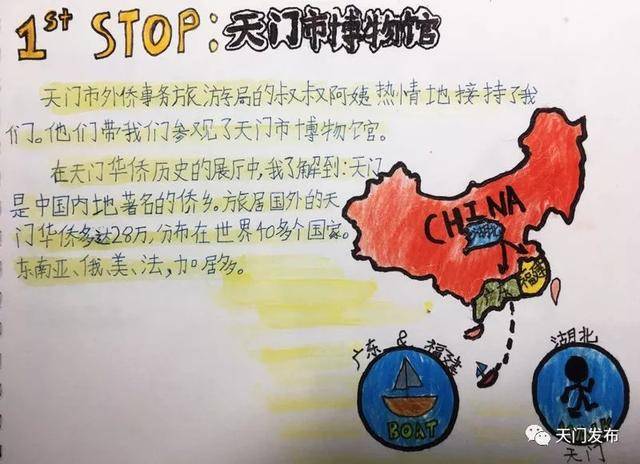 1st STOP:天门市博物馆
天门市外侨事务旅游局的叔叔阿姨热情地接持了我
们。他们带我们参观了天门市博物馆。
在天门华侨历史的展厅中,我了解到:天门
是中国内地著名的侨乡。旅居国外的天
门华侨多达28万,分布在世界40多个国家。
东南亚、俄、美、法,加居多。
CHINA
福建
广东 & 福建
BOAT
湖北
天门
天门发布